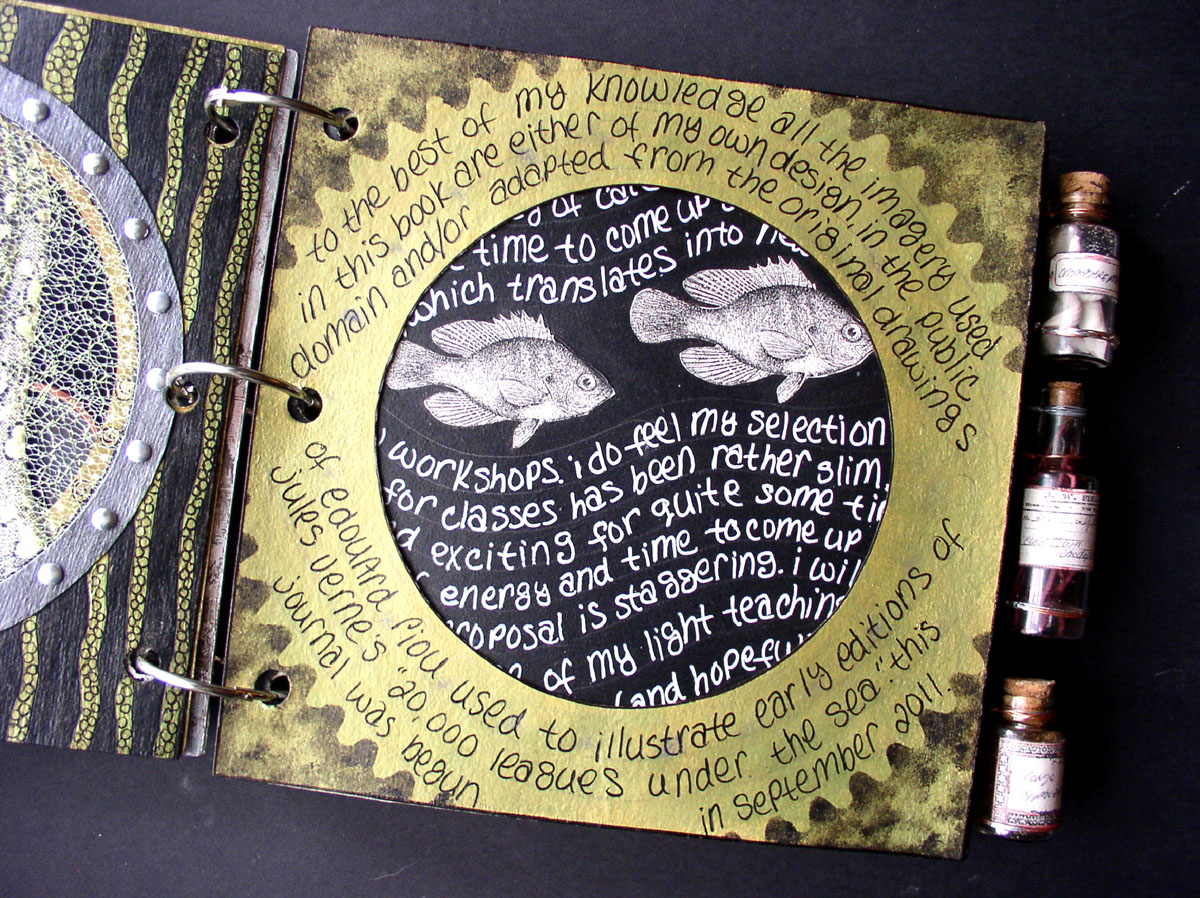 to the best of my knowledge all the imagery used
in this book are either of my own design, in the public
domain and/or adapted from the original drawings
of edouard riou used to illustrate early editions of
jules verne's "20,000 leagues under the sea." this
journal was begun in september 2011.
of
time to come up
which translates into
workshops. i do feel my selection
for classes has been rather slim.
exciting for quite some
energy and time to come up
proposal is staggering. i
of my light
(and